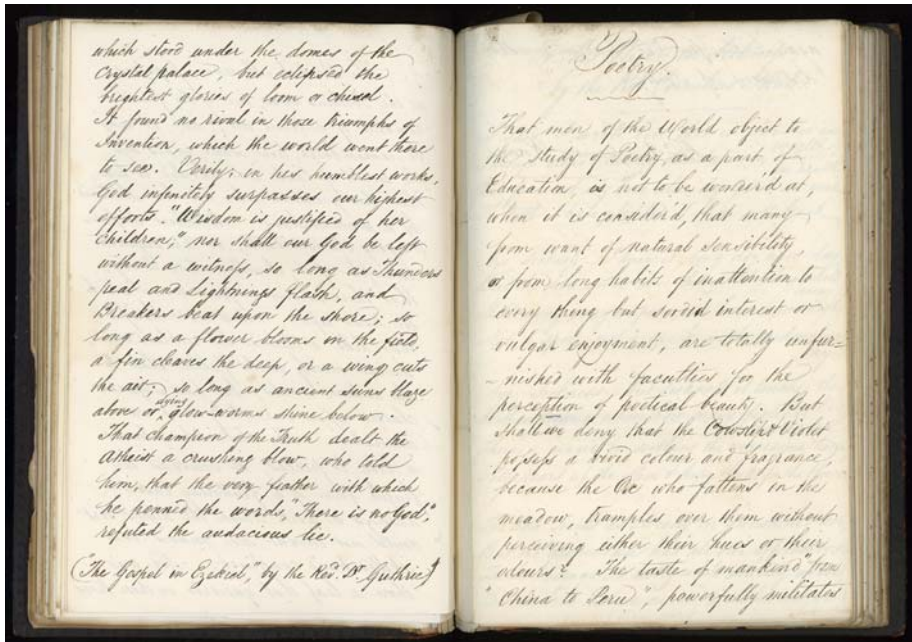 which stood under the domes of the
Crystal palace, but eclipsed the
brightest glories of loom or chisel.
It found no rival in those triumphs of
Invention, which the world went there
to see. Verily, in his humblest works,
God infinitely surpasses our highest
efforts. "Wisdom is justified of her
children," nor shall our God be left
without a witness, so long as Thunders
peal and Lightnings flash, and
Breakers beat upon the shore; so
long as a flower blooms in the field,
a fin cleaves the deep, or a wing cuts
the air; so long as ancient suns blaze
above or dying glow-worms shine below.
That champion of the Truth dealt the
Atheist a crushing blow, who told
him, that the very feather with which
he penned the words, "There is no God",
refuted the audacious lie.
("The Gospel in Ezekiel", by the Revd. Dr. Guthrie)
Poetry
That men of the World object to
the Study of Poetry, as a part of
Education, is not to be wonder'd at,
when it is consider'd, that many
from want of natural sensibility,
or from long habits of inattention to
every thing but sordid interest or
vulgar enjoyment, are totally unfur=
-nished with faculties for the
perception of poetical beauty. But
shall we deny that the Cowslip & Violet
possess a vivid colour and fragrance,
because the Ox who fattens in the
meadow, tramples over them without
perceiving either their hues or their
odours? The taste of mankind "from
"China to Peru", powerfully militates